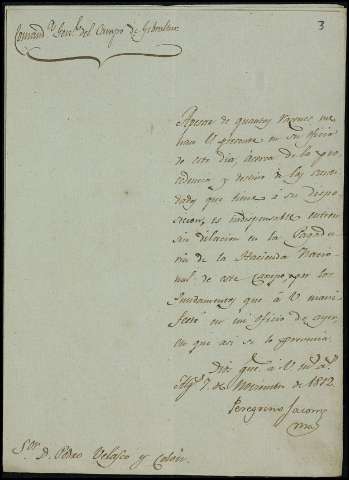 3
Comand.ª Gen.l del Campo de Gibraltar
Apesar de quantas razones me
han V presente en su oficio
de este dia, acerca de la pro
cedencia y destino de las canti
dades que tiene á su dispo
sicion, es indispensable entren
sin dilacion en la Pagadu
ria de la Hacienda Nacio
nal de este Campo, por los
fundamentos que á V mani
festé en mi oficio de ayer,
en que asi se lo prevenia.
Dios gue. á V m.s a.s
Alg.s 7 de Noviembre de 1812.
Peregrino Jacome
S.or D. Pedro Velasco y Colón.